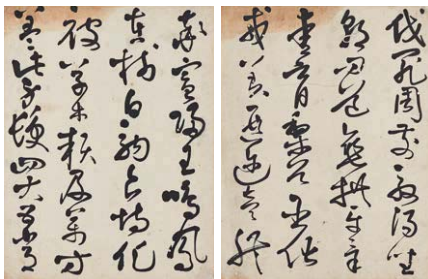 伐罪周發殷湯坐
朝問道垂拱平章
愛育黎首臣伏
戎羌遐邇壹體
率賓歸王鳴鳳
在樹白駒食場化
被草木賴及萬方
蓋此身髮四大五常